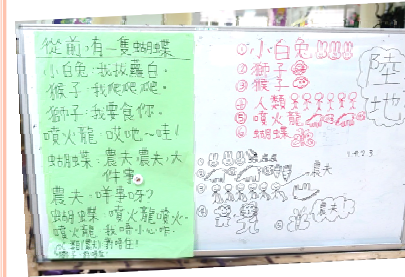 從前,有一隻蝴蝶
小白兔:我拔蘿白.
猴子:我爬爬爬.
獅子:我要食你.
噴火龍:哎吔~哇!
蝴蝶:農夫農夫,大
件事
農夫:咩事呀?
蝴蝶:噴火龍噴火.
噴火龍:我唔小心咋.
①小白兔
②獅子
③猴子
④人類
⑤噴火龍
⑥蝴蝶
陸地
農夫
農夫